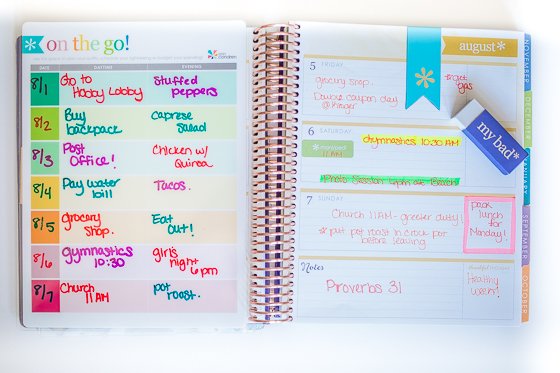 on the go!
erin condren
DATE DAYTIME EVENING
8/1 Go to Hobby Lobby Stuffed peppers
8/2 Buy backpack Caprese Salad
8/3 Post Office! Chicken w/ Quinoa
8/4 Pay water bill Tacos.
8/5 grocery stop. Eat out!
8/6 gymnastics 10:30 girl's night 6pm
8/7 Church 11AM pot roast.
august*
5 FRIDAY
grocery stop.
Double coupon day
@ Kroger
*get
gas
my bad*
6 SATURDAY
Gymnastics 10:30 AM
11AM
Photo Session 6pm at Beach
7 SUNDAY
Church 11AM - greeter duty!
* put pot roast in crock pot
before leaving
pack
lunch
for
Monday!
Notes
Proverbs 31
Healthy
week!
NOVEMBER
DECEMBER
JANUARY
SEPTEMBER
OCTOBER